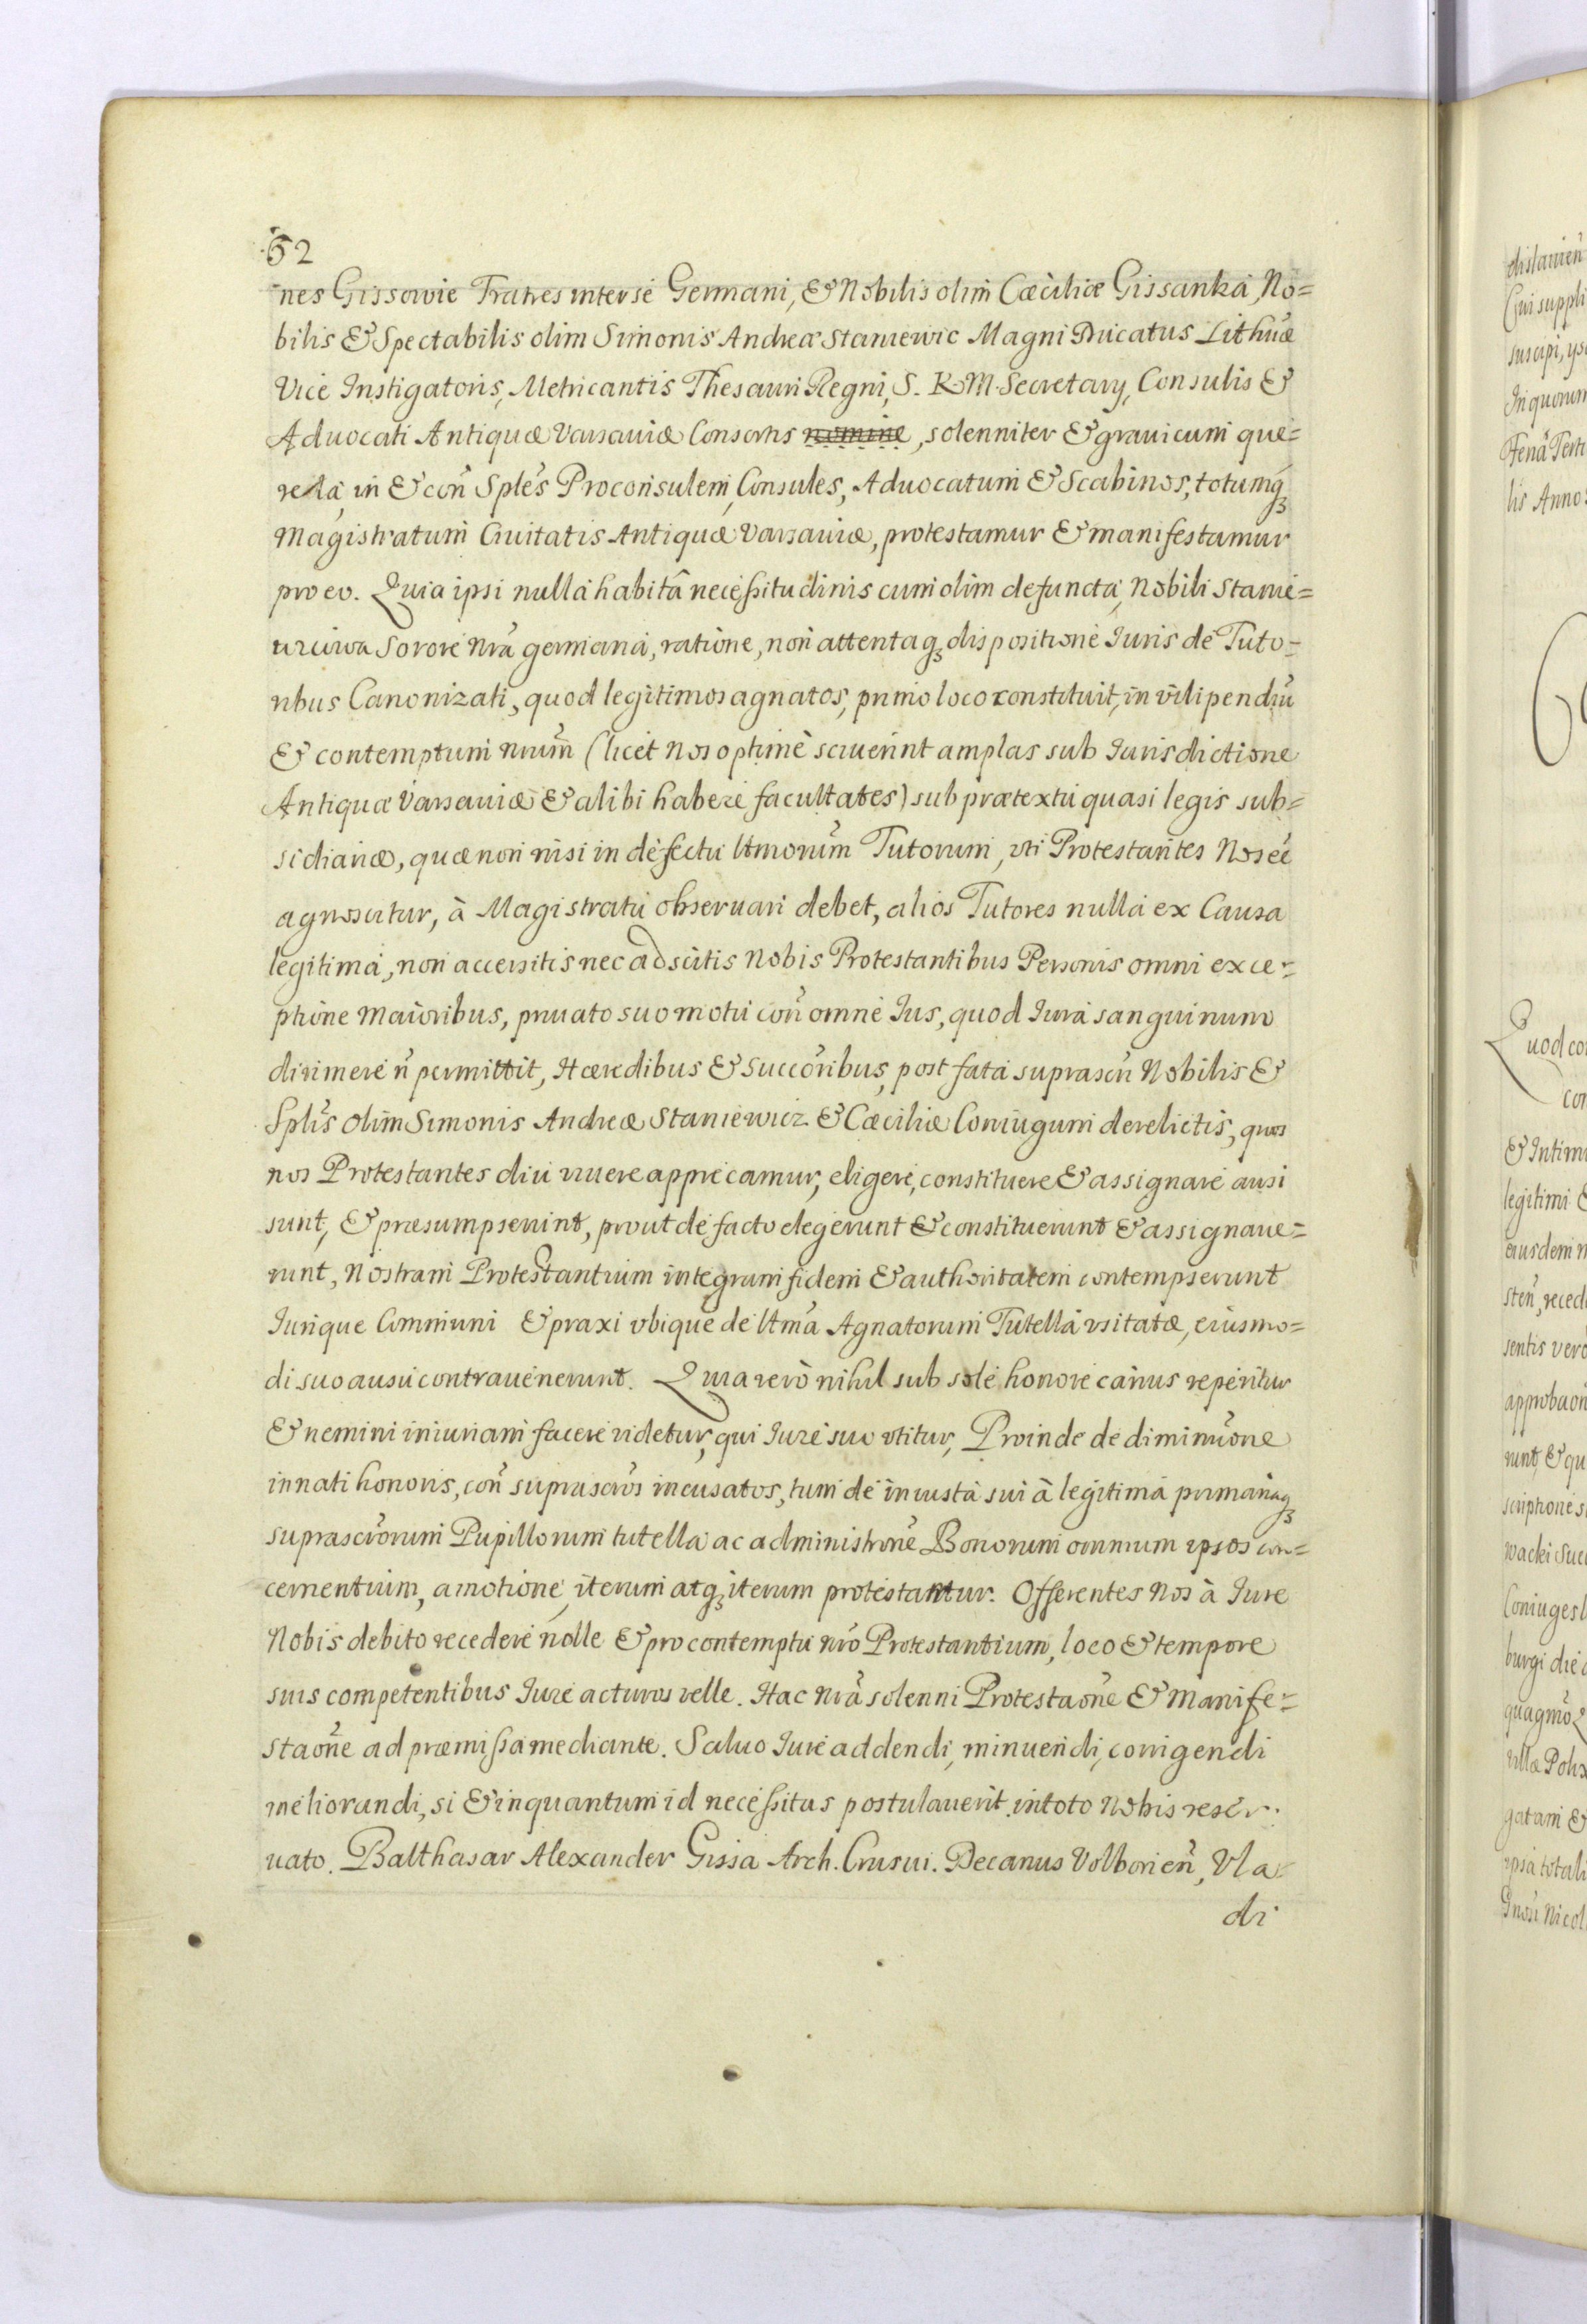 52
nes Gissowie Fratres inter se Germani, & Nobilis olim Cæciliæ Gissanka, No=
bilis & Spectabilis olim Simonis Andreæ Staniewic Magni Ducatus Lithuæ
Vice Instigatoris, Metricantis Thesauri Regni, S. R. M. Secretary, Consulis &
Aduocati Antiquæ Varsauiæ Consortis nomine, solenniter & graui cum que=
rela, in & con̄ Sples Proconsulem, Consules, Aduocatum & Scabinos, totumq;
Magistratum Ciuitatis Antiquæ Varsauiæ, protestamur & manifestamur
pro eo. Quia ipsi nulla habitâ necessitudinis cum olim defuncta, Nobili Stanie=
wiciwa Sorore nrā germana, ratione, non attentaq; dispositione Iuris de Tuto=
ribus Canonizati, quod legitimos agnatos, primo loco constituit, in vilipendiū
& contemptum nrum̄ (licet nos optimè sciuerint amplas sub Iurisdictione
Antiquæ Varsauiæ & alibi habere facultates) sub prætextu quasi legis sub=
sidiariæ, quæ non nisi in defectu ltmorum̄ Tutorum, vti Protestantes Nos eē
agnoscitur, à Magistratu obseruari debet, alios Tutores nulla ex Causa
legitima, non accersitis nec adscitis Nobis Protestantibus Personis omni exce=
ptione maioribus, priuato suo motu con̄ omne Ius, quod Iura sanguinum
dirimere n̄ permittit, Hæredibus & Succōribus, post fata suprascr̄ Nobilis &
Splis olim Simonis Andreæ Staniewicz & Cæciliæ Coniugum derelictis, quos
nos Protestantes diu viuere apprecamur, eligere, constituere & assignare ausi
sunt, & præsumpserunt, prout de facto elegerunt & constituerunt & assignaue=
runt, Nostram Protestantium integram fidem & authoritatem contempserunt
Iurique Communi & praxi vbique de ltmā Agnatorum Tutella vsitatæ, eiusmo=
di suo ausu contrauenerunt. Quia verò nihil sub sole honore carius reperitur
& nemini iniuriam facere videtur, qui Iure suo vtitur, Proinde de diminuōne
innati honoris, con̄ suprascr̄os incusatos, tum de iniusta sui à legitima primariaq;
suprascr̄orum Pupillorum tutella ac administrōne Bonorum omnium ipsos con=
cernentium, amotione, iterum atq; iterum protestantur. Offerentes Nos à Iure
Nobis debito recedere nolle & pro contemptu nr̄o Protestantium, loco & tempore
suis competentibus Iure acturos velle. Hac nrā solenni Protestaōne & Manife=
staōne ad præmissa mediante. Saluo Iure addendi, minuendi, corrigendi
meliorandi, si & inquantum id necessitas postulauerit in toto Nobis reser=
uato. Balthasar Alexander Gissa Arch. Crusui. Decanus Volborien̄, Vla=
di